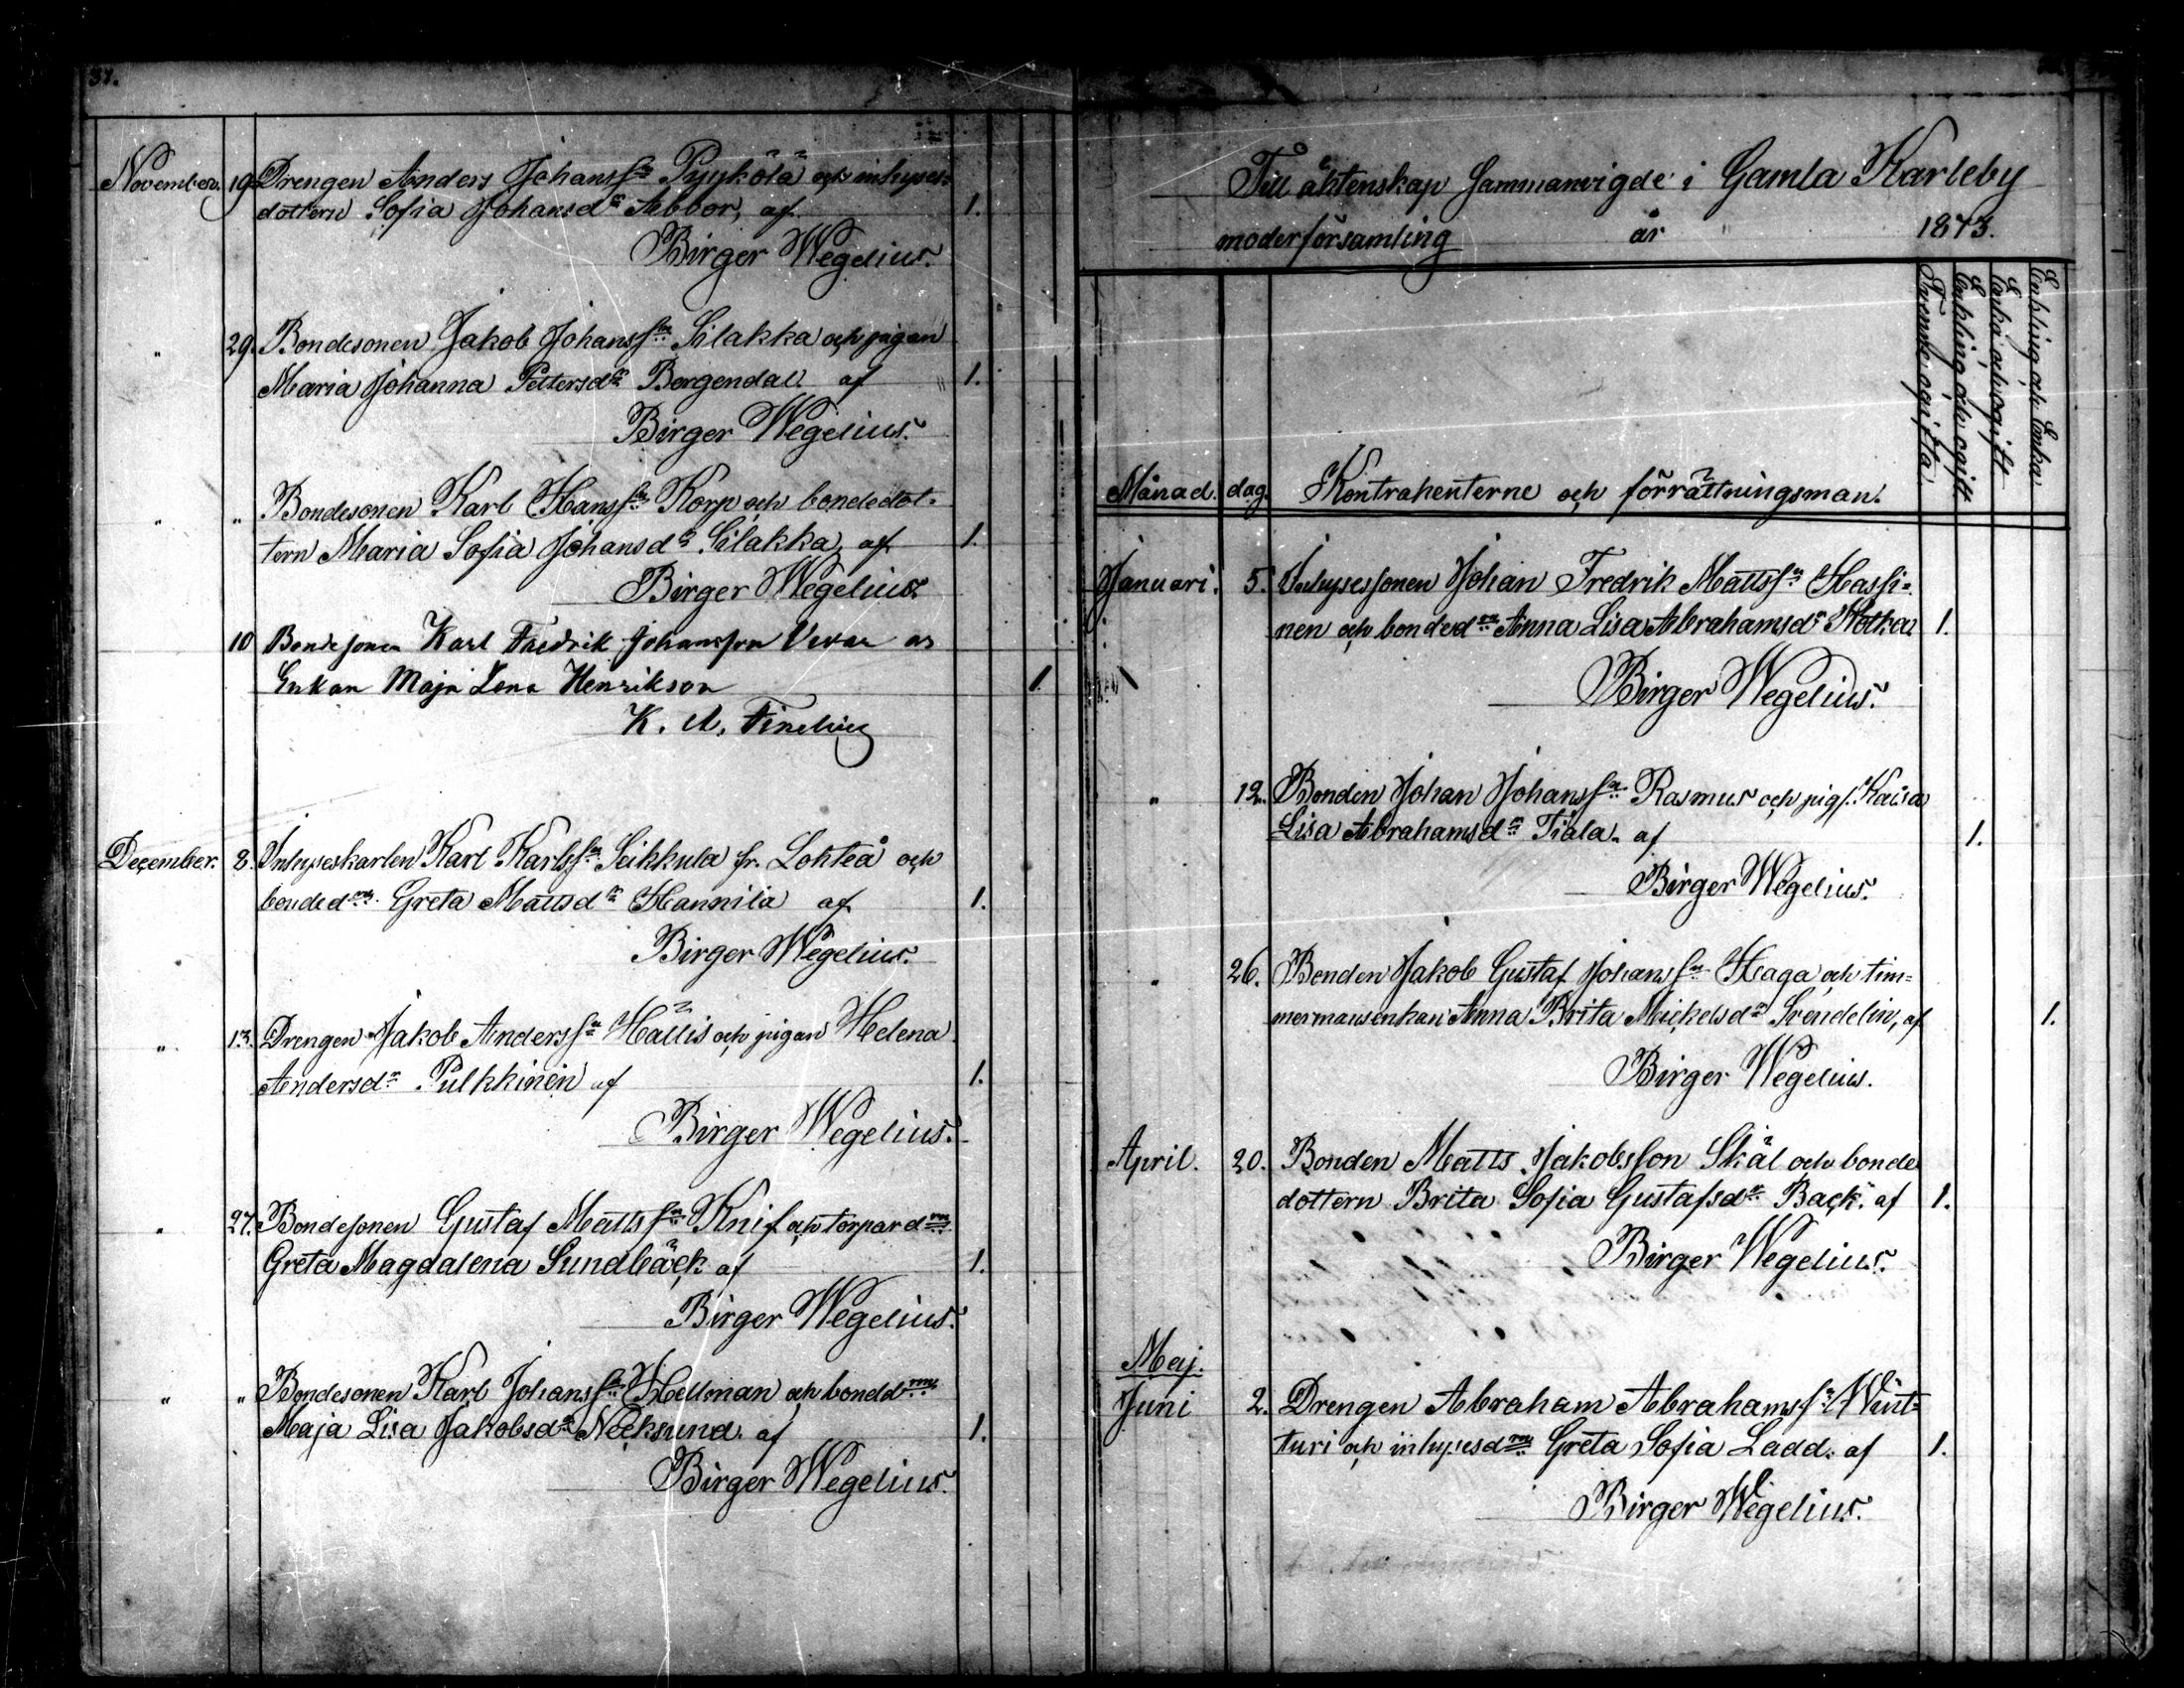 37.
November. 19. Drengen Anders Johanssn Pyykölä och inhyses-
dottern Sofia Johansdr Abbor, af 1.
Birger Wegelius.
" 29. Bondesonen Jakob Johanssn Silakka och pigan
Maria Johanna Pettersdr Bergendal. af " 1.
Birger Wegelius.
" " Bondesonen Karl Hanssn Korp och bondedot-
tern Maria Sofia Johansdr Silakka, af 1.
Birger Wegelius.
10 Bondesonen Karl Fredrik Johansson
Enkan Maja Lena Henrikson 1
K. A.
December. 8. Inhyseskarlen Karl Karlssn Seikkula fr. Lohteå och
bondedrn Greta Mattsdr Hannila af 1.
Birger Wegelius.
" 13. Drengen Jakob Anderssn Hällis och pigan Helena
Andersdr Pulkkinen af 1.
Birger Wegelius.
" 27. Bondesonen Gustaf Mattssn Knif och torpardrn
Greta Magdalena Sundbäck af 1.
Birger Wegelius.
" " Bondesonen Karl Johanssn Hellman och bondedrn
Maja Lisa Jakobsdr Necksund. af 1.
Birger Wegelius.
Till äktenskap Sammanvigde i Gamla Karleby
moderförsamling år 1873.
Månad. dag. Kontrahenterne och förrättningsman.
Tvenne ogifta
Enkling och ogift
Enka och ogift
Enkling och Enka
Januari. 5. Inhysessonen Johan Fredrik Mattssn Hassi-
nen och bondedrn Anna Lisa Abrahamsdr Kotka 1.
Birger Wegelius.
" 12. Bonden Johan Johanssn Rasmus och pig. Kaisa
Lisa Abrahamsdr Tiala. af 1.
Birger Wegelius.
" 26. Bonden Jakob Gustaf Johanssn Haga och tim-
mermansenkan Anna Brita Mickelsdr Svendelin, af 1.
Birger Wegelius.
April. 20. Bonden Matts Jakobsson Skäl och bonde
dottern Brita Sofia Gustafsdr Back. af 1.
Birger Wegelius.
Maj.
Juni 2. Drengen Abraham Abrahamssn Wint-
turi och inhysesdrn Greta Sofia Ladd. af 1.
Birger Wegelius.